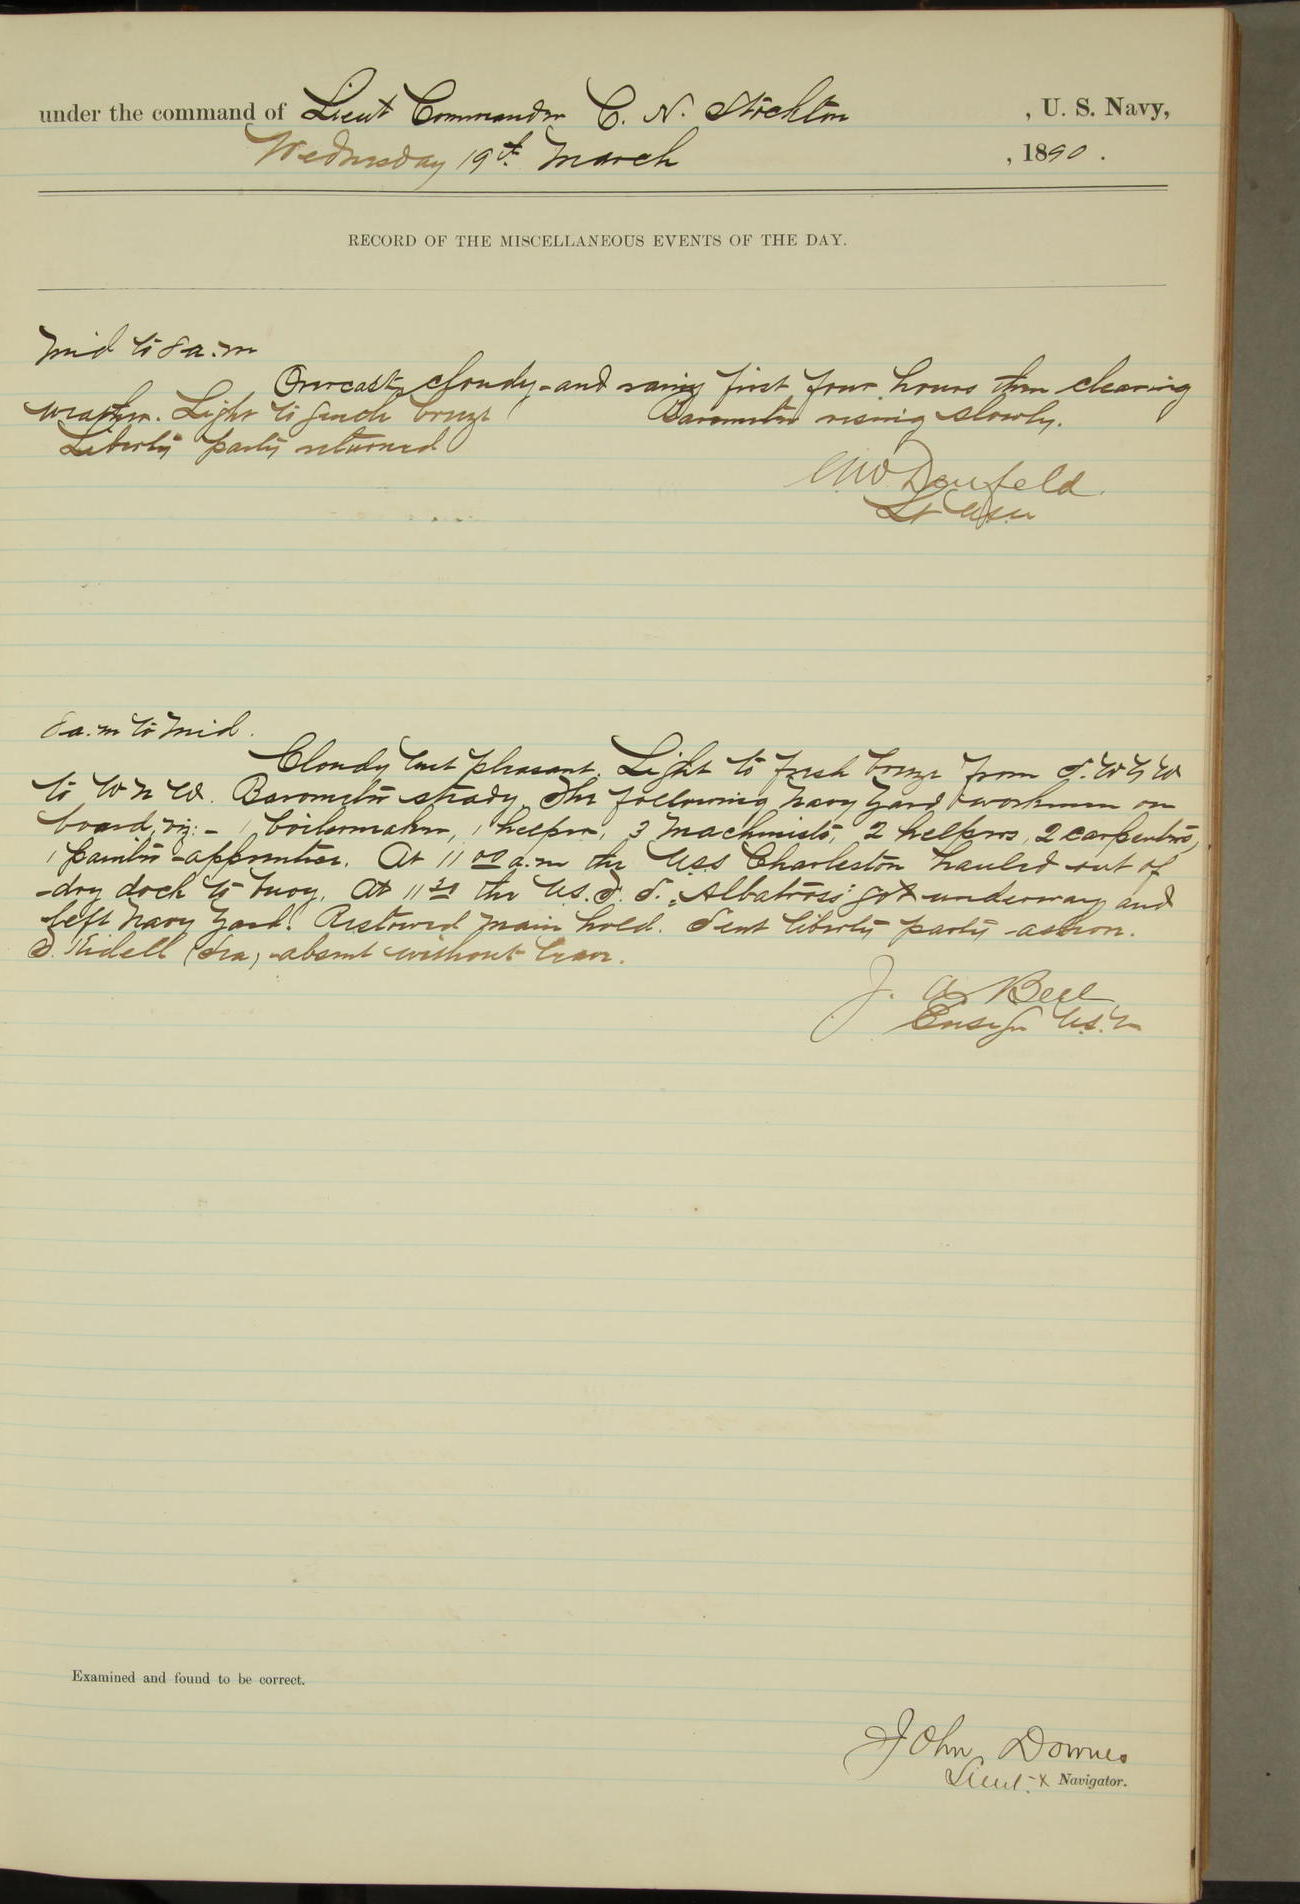 under the command of Lieut Commander C. H. Stockton, U. S. Navy,
Wednesday 19th March, 1890.
RECORD OF THE MISCELLANEOUS EVENTS OF THE DAY.
Mid to 8 a.m
Overcast, cloudy and rainy first four hours then clearing
weather. Light to gentle breeze Barometer rising slowly.
Liberty party returned
Denfeld.
Lt USN
8 a.m to Mid.
Cloudy but pleasant. Light to fresh breeze from
to W N W. Barometer steady. The following Navy Yard workmen on
board, viz:- 1 boilermaker, 1 helper, 3 machinists, 2 helpers, 2 carpenters,
1 painter apprentice. At 11 00 a.m the USS Charleston hauled out of
dry dock to buoy. At 11 the U.S.F.S. "Albatross" got underway and
left Navy Yard. Restowed main hold. Sent liberty party ashore.
(Sea) absent without leave.
J. A. Bell
Ensign U.S.N
Examined and found to be correct.
John Downes
Lieut. & Navigator.